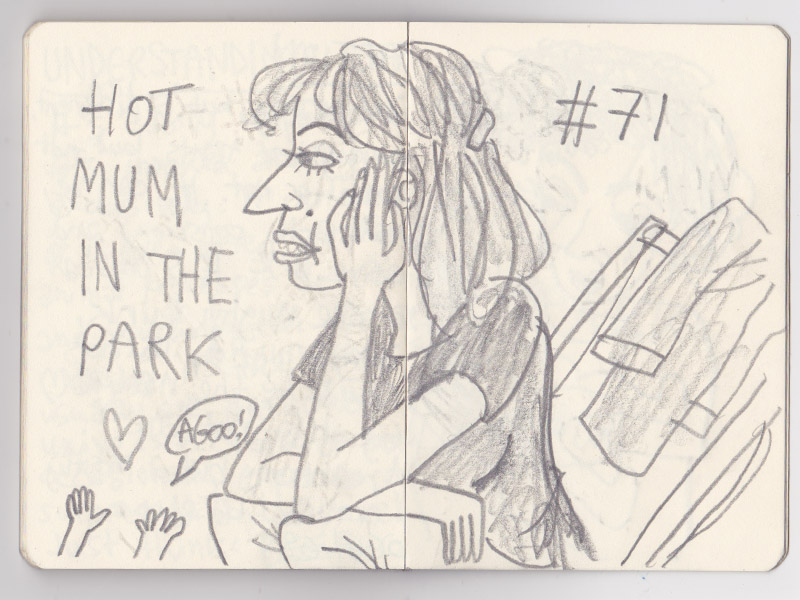 HOT
MUM
IN THE
PARK
AGOO!
#71